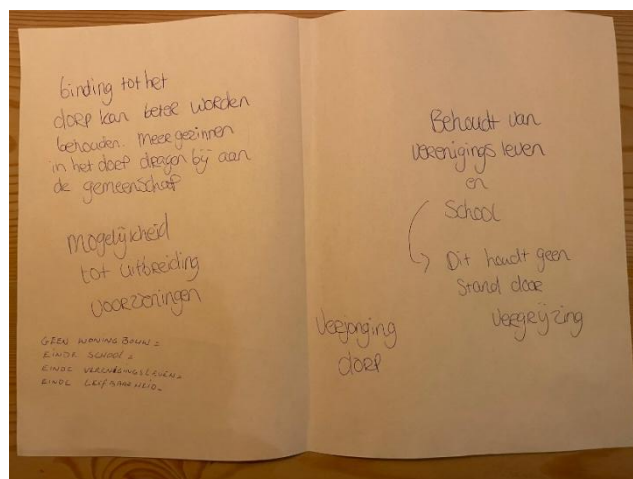 binding tot het
dorp kan beter worden
behouden. Meer gezinnen
in het dorp dragen bij aan
de gemeenschap
mogelijkheid
tot uitbreiding
voorzieningen
GEEN WONINGBOUW =
EINDE SCHOOL =
EINDE VERENIGINGSLEVEN =
EINDE LEEFBAARHEID.
Behoudt van
verenigings leven
en
School
Dit houdt geen
Stand door
vergrijzing
Verjonging
dorp